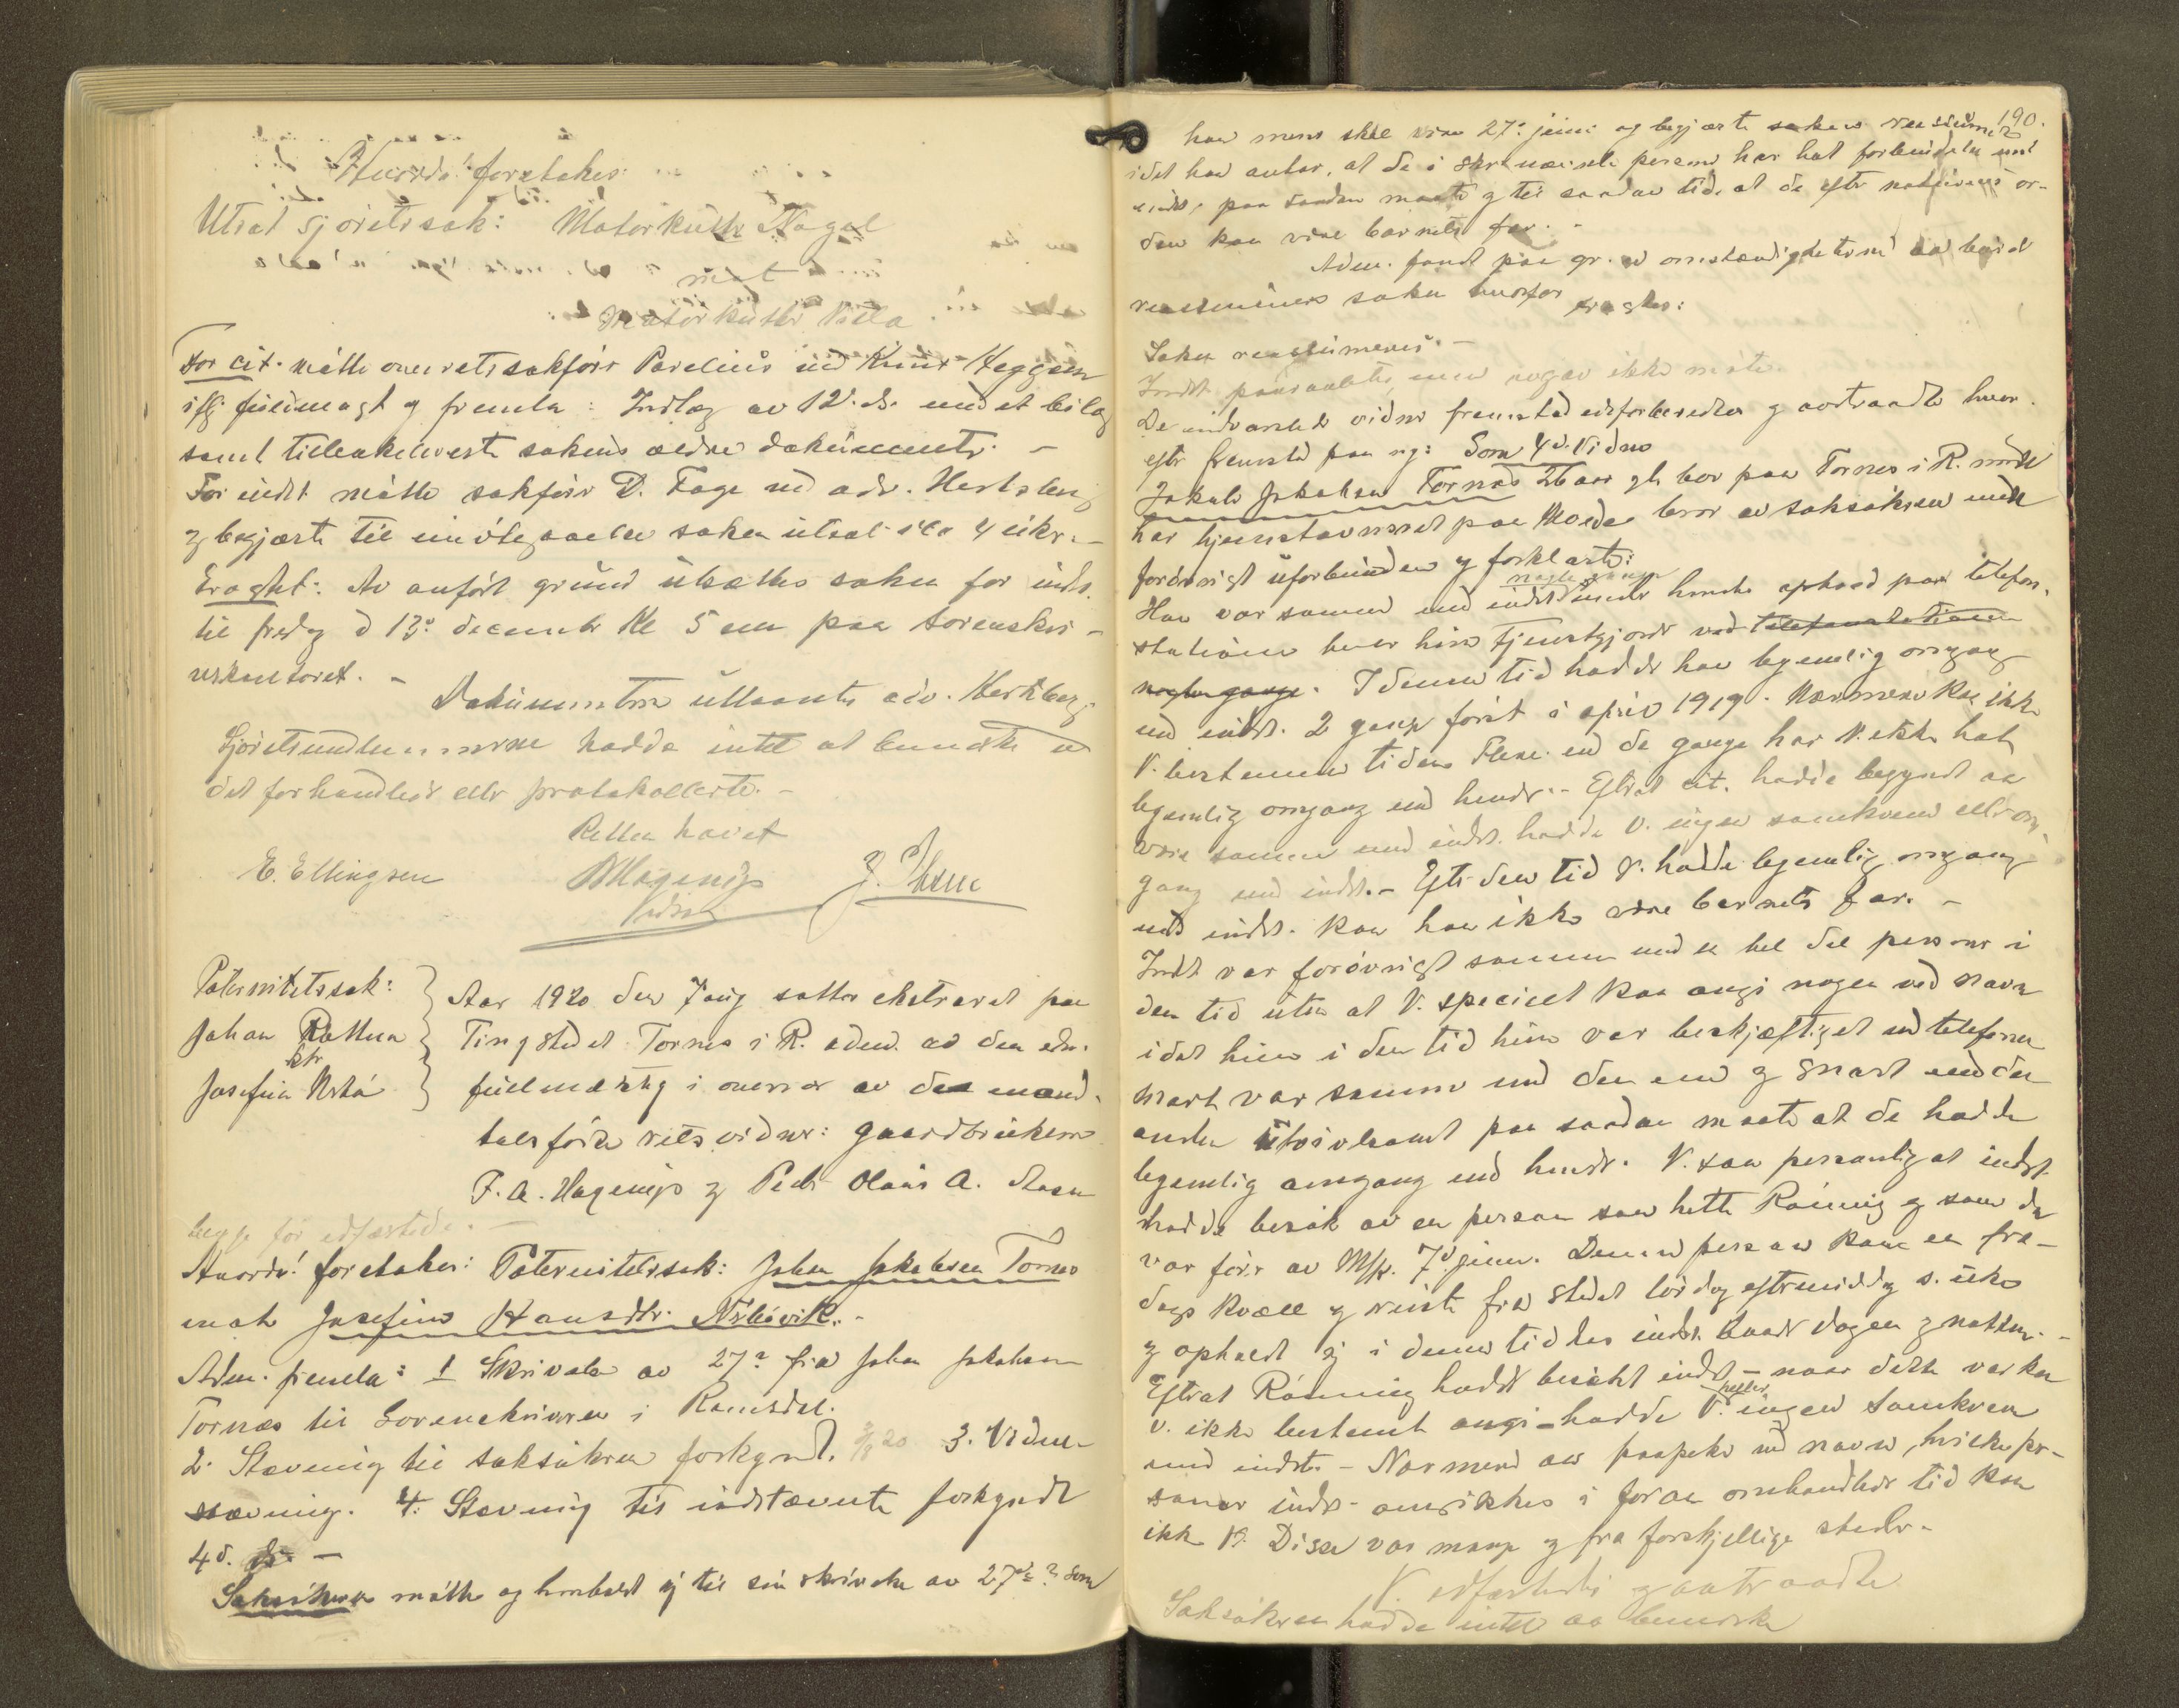 Hvorda! foretakes:
Utsat sjøretssak: Motorkutter Nagel
mot
Motorkutter Villa
For cit. møtte overretssakfører Parelius ved Knut Heggem
ifg. fuldmagt og fremla: Indlæg av 12. ds. med et bilag
samt tilbakeleverte sakens ældre dokumenter. -
For indst. møtte sakfører D. Fage ved adv. Hertzberg
og begjærte til imøtegaaelse saken utsat i ca 4 uker. -
Eragtet: Av anført grund utsættes saken for indst.
til fredag d 13de december Kl 5 em paa sorenskri-
verkontoret. -
Dokumenterne utlaantes adv. Hertzberg.
Sjøretsmedlemmerne hadde intet at bemærke ved
det forhandlede eller protokollerte. -
Retten hævet
E. Ellingsen
Paternitetssak:
Johan
ktr
Josefine
Aar 1920 den 7 aug sattes ekstraret paa
Tingstedet Tornes i R. adm. av den edsv.
fuldmægtig i overvær av de mand-
talsførte retsvidner: gaardbrukerne
P. A. Hagenes og Peder Olaus A.
begge før edfæstede. -
Hvorda! foretakes: Paternitetssak: Johan Jakobsen Tornes
mot Josefine Hansdtr.
Adm. fremla: 1 Skrivelse av 27 fra Johan Jakobsen
Tornæs til Sorenskriveren i Romsdal.
2. Stævning til saksøkeren forkyndt. 20 3. Vidne-
stævning. 4. Stævning til indstævnte forkyndt
4 d. ds. -
Saksøkeren møtte og henholdt sig til sin skrivelse av 27de som
190.
han mener skal være 27. juni og begjærte saken reassumert
idet han antar, at de i skr. nævnte personer har hat forbindelse med
indst. paa saadan maate og til saadan tid, at de efter naturens or-
den kan være barnets far. -
Adm. fandt paa gr. av omstændigheterne at burde
reassumere saken hvorfor eragtes:
Saken reassumeres. -
Indst. paaraabtes, men nogen ikke møtte.
De indvarslede vidner fremstod edsforberedtes og avtraadte hvor-
efter fremstod paa ny: Som 4d. Vidne
Jakob Jakobsen Tornes 26 aar gl. bor paa Tornes i R. født
har hjemstavnsret paa Molde bror av saksøkeren men
forøvrigt uforbunden og forklarte:
Han var sammen med indst. nogle gange under hendes ophold paa telefon-
stationen hvor hun tjenstgjorde ved telefonstationen
nogle gange. I denne tid hadde han legemlig omgang
med indst. 2 gange først i april 1919. Nærmere kan ikke
V. bestemme tiden. Flere end de gange har V. ikke hat
legemlig omgang med hende. - Efterat cit. hadde begyndt aa
være sammen med indst. hadde V. ingen samkvem eller om-
gang med indst. - Efter den tid V. hadde legemlig omgang
med indst. kan han ikke være barnets far. -
Indst. var forøvrigt sammen med en hel del personer i
den tid uten at V. specielt kan angi nogen ved navn
idet hun i den tid hun var beskjæftiget ved telefonen
snart var sammen med den ene og snart med den
anden utvivlsomt paa saadan maate at de hadde
legemlig omgang med hende. V. saa personlig at indst.
hadde besøk av en person som hette Rønning og som da
var fører av M/k. 7de juni. Denne person kom en fre-
dags kvæld og reiste fra stedet lørdag eftermiddag s. uke
og opholdt sig i denne tid hos indst. baade dagen og natten. -
Efterat Rønning hadde besøkt indst - naar dette var kan
V. ikke bestemt angi - hadde V. heller ingen samkvem
med indst. - Nærmere aa paapeke ved navn, hvilke per-
soner indst. omgikkes i foran omhandlede tid kan
ikke V. Disse var mange og fra forskjellige steder. -
V. edfæstedes og avtraadte
Saksøkeren hadde intet aa bemerke